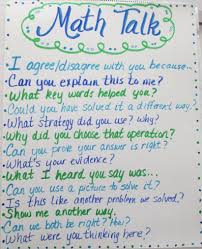 Math Talk
I agree/disagree with you because...
Can you explain this to me?
What key words helped you?
Could you have solved it a different way?
What strategy did you use? why?
Why did you choose that operation?
Can you prove your answer is right?
What's your evidence?
What I heard you say was...
Can you use a picture to solve it?
Is this like another problem we solved?
Show me another way.
Can we both be right? how?
What were you thinking here?